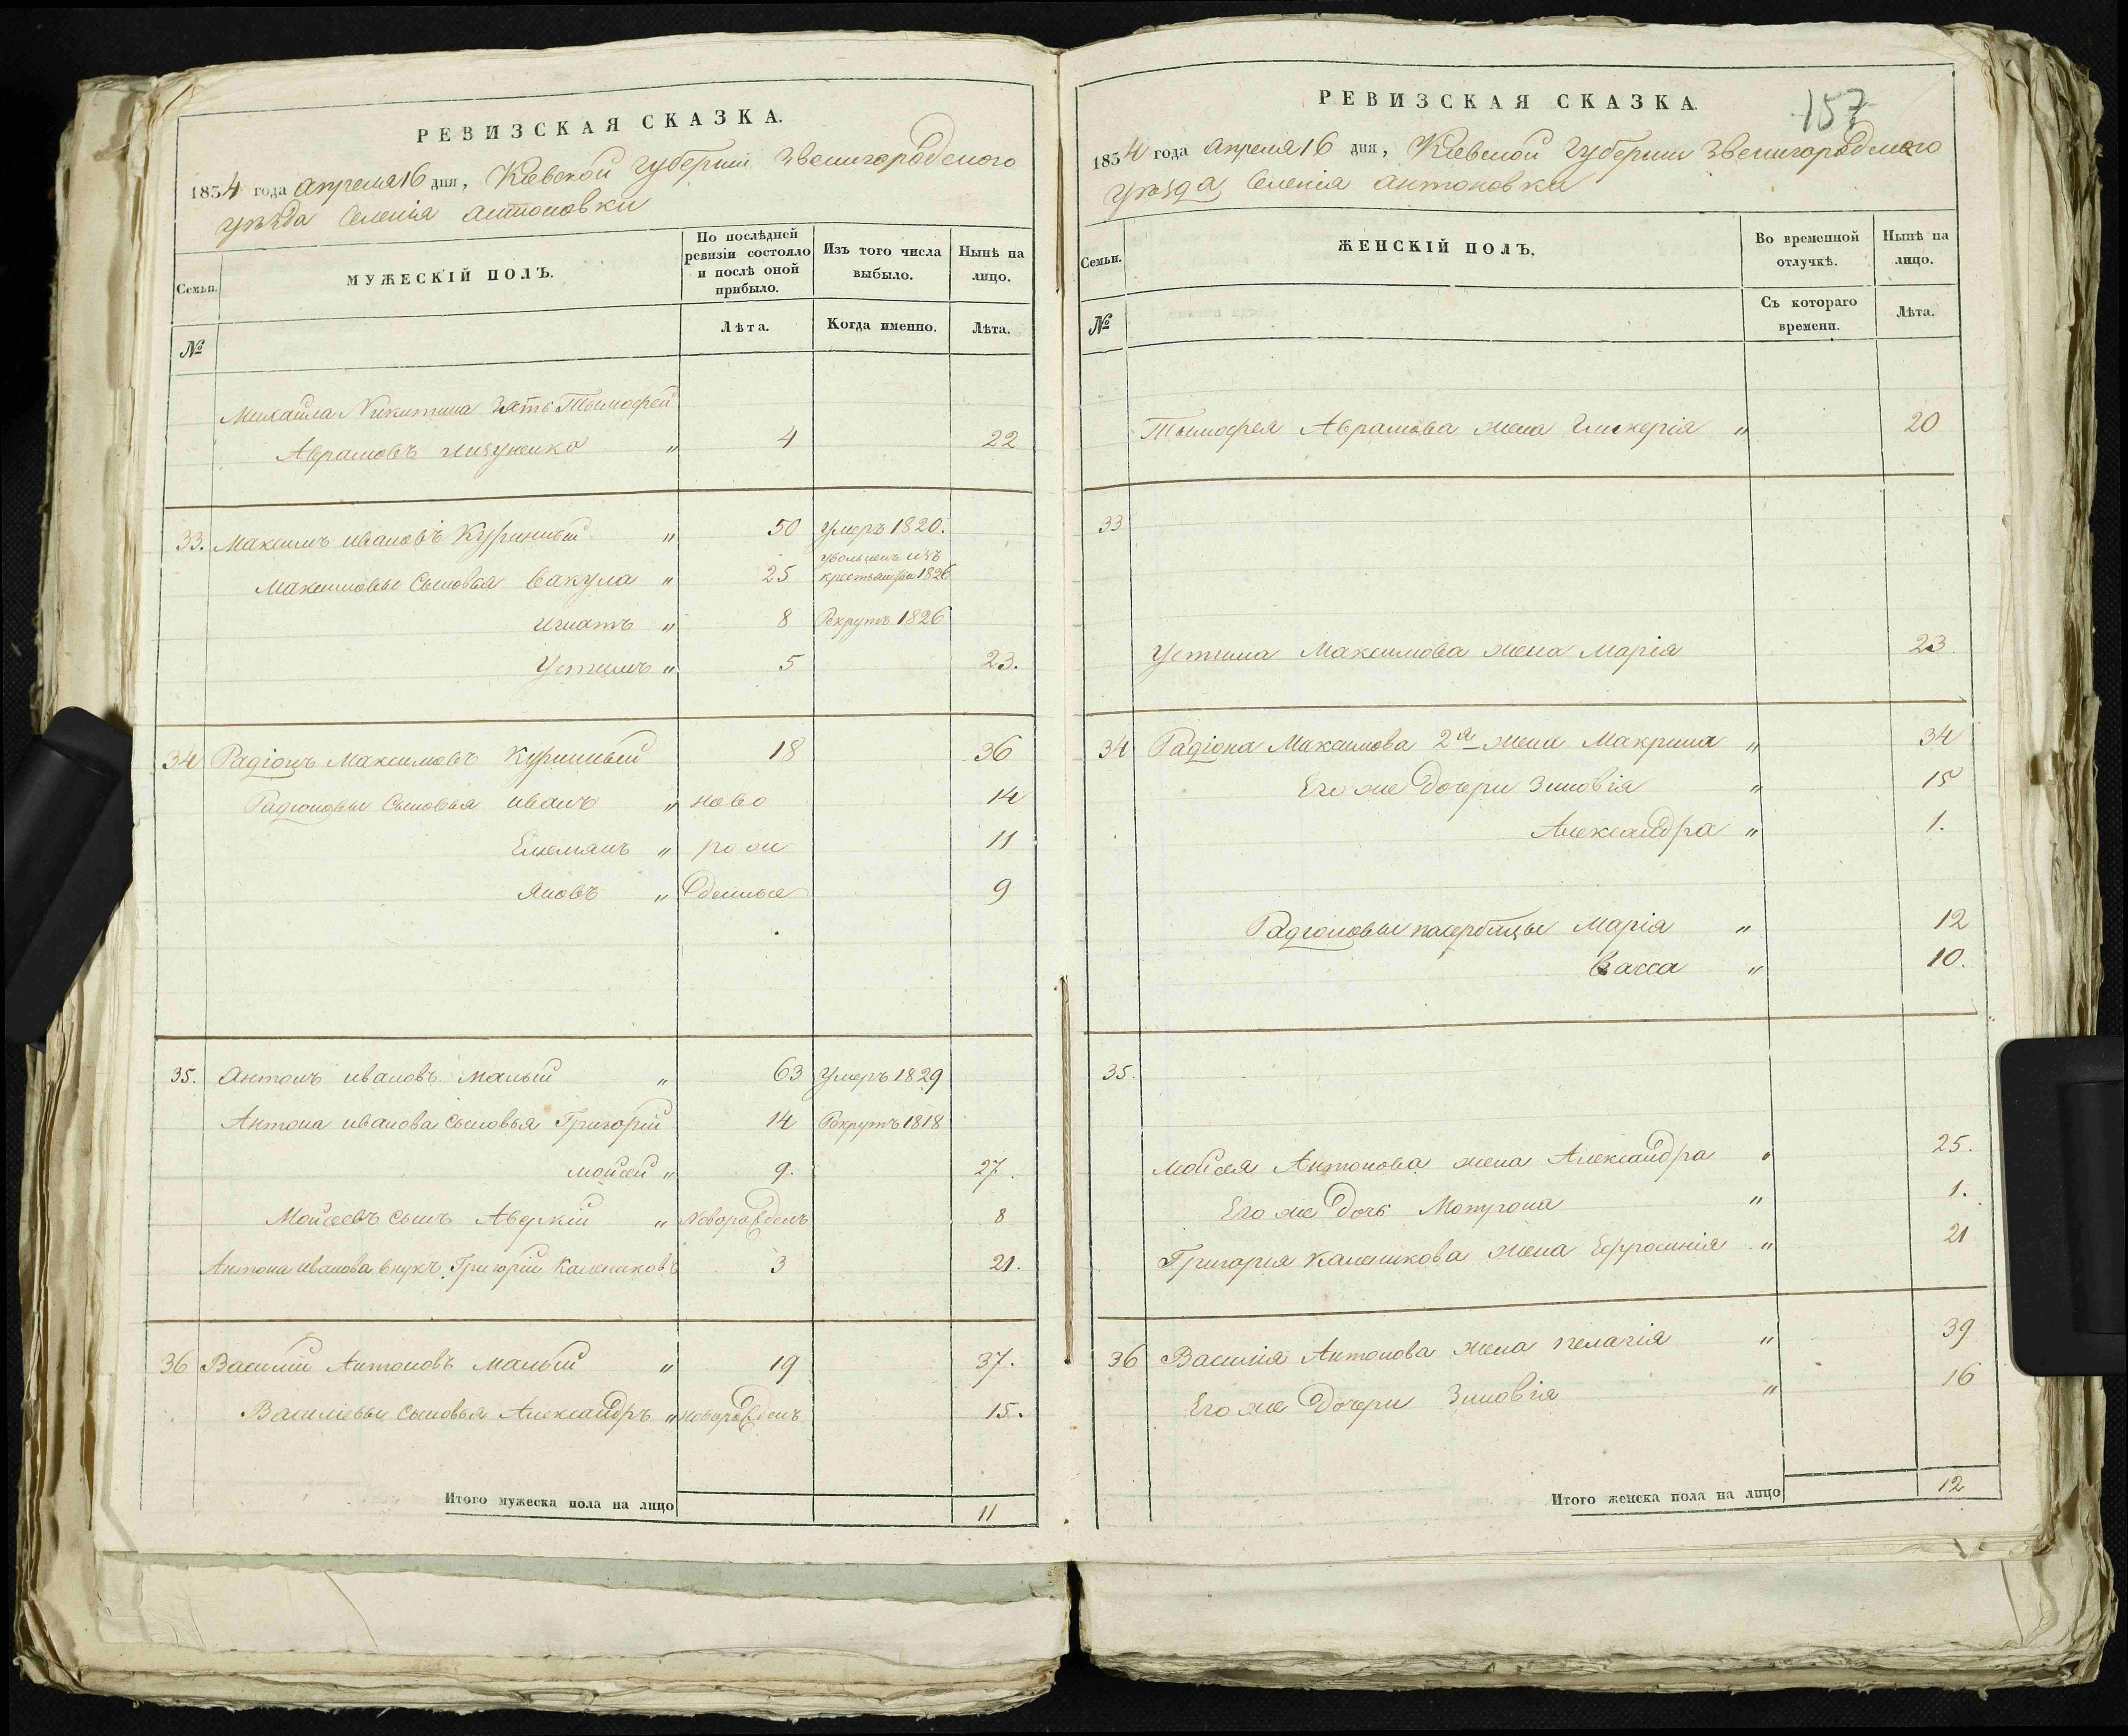 РЕВИЗСКАЯ СКАЗКА.
1834 года апреля 16 дня, Киевской Губернии Звенигородского
уѣзда Селенія Антоновки
Семьи.
МУЖЕСКІЙ ПОЛЪ.
По послѣдней ревизіи состояло и послѣ оной прибыло.
Изъ того числа выбыло.
Нынѣ на лицо.
№
Лѣта.
Когда именно.
Лѣта.
Михаила Никитина зять Тымофей
Аврамовъ " 4 22
33. Максимъ ивановъ Куринный " 50 умеръ 1820.
Максимовы Сыновья Вакула " 25 уволненъ изъ крестьянства 1826
Игнатъ " 8 Рекрутъ 1826
Устимъ " 5 23.
34 Радіонъ Максимовъ Куринный 18 36
Радіоновы Сыновья иванъ " ново 14
Емельянъ " рож 11
Яковъ " денные 9
35. Антонъ ивановъ Малый " 63 умеръ 1829
Антона иванова сыновья Григорій 14 Рекрутъ 1818
Мойсей " 9. 27.
Мойсеевъ сынъ Аверкій " Новорожденъ 8
Антона иванова внукъ Григорій Калениковъ 3 21.
36 Василій Антоновъ Малый " 19 37.
Василіевы сыновья Александръ " новорожденъ 15.
Итого мужеска пола на лицо 11
157
РЕВИЗСКАЯ СКАЗКА.
1834 года апреля 16 дня, Киевской Губернии Звенигородского
уѣзда Селенія Антоновки
Семьи.
ЖЕНСКІЙ ПОЛЪ.
Во временной отлучкѣ.
Нынѣ на лицо.
№
Съ котораго времени.
Лѣта.
Тымофея Аврамова жена Гликерія " 20
33
Устима Максимова жена Марія 23
34 Радіона Максимова 2я жена Макрина " 34
Его же Дочери Зиновія " 15
Александра " 1.
Радіоновы пасербицы Марія " 12
Васса " 10.
35.
Мойсея Антонова жена Александра " 25.
Его же Дочь Мотрона " 1.
Григорія Каленикова жена Ефросинія " 21
36 Василія Антонова жена Пелагія " 39
Его же Дочери Зиновія " 16
Итого женска пола на лицо 12